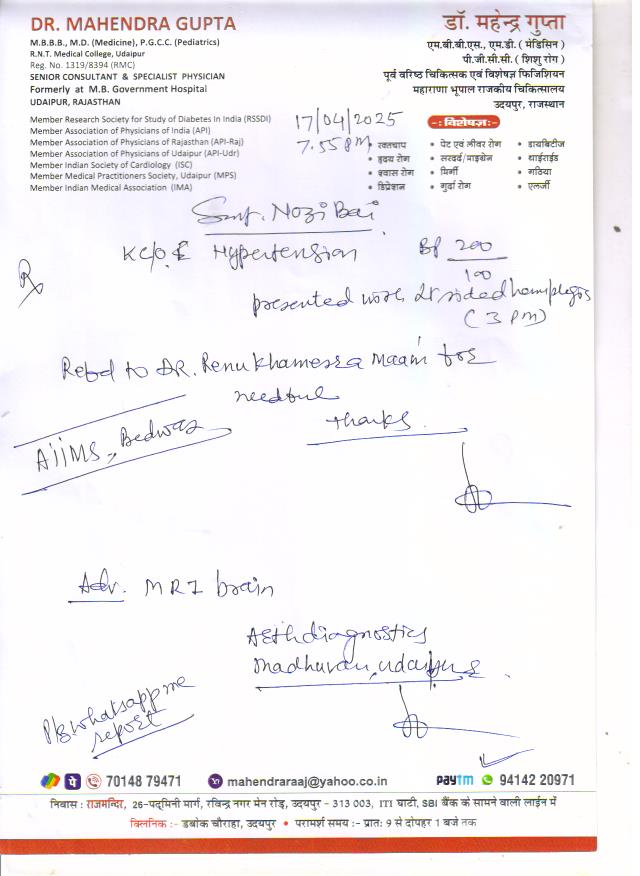 DR. MAHENDRA GUPTA
M.B.B.B., M.D. (Medicine), P.G.C.C. (Pediatrics)
R.N.T. Medical College, Udaipur
Reg. No. 1319/8394 (RMC)
SENIOR CONSULTANT & SPECIALIST PHYSICIAN
Formerly at M.B. Government Hospital
UDAIPUR, RAJASTHAN
Member Research Society for Study of Diabetes In India (RSSDI)
Member Association of Physicians of India (API)
Member Association of Physicians of Rajasthan (API-Raj)
Member Association of Physicians of Udaipur (API-Udr)
Member Indian Society of Cardiology (ISC)
Member Medical Practitioners Society, Udaipur (MPS)
Member Indian Medical Association (IMA)
डॉ. महेन्द्र गुप्ता
एम.बी.बी.एस., एम.डी. ( मेडिसिन )
पी.जी.सी.सी. ( शिशु रोग )
पूर्व वरिष्ठ चिकित्सक एवं विशेषज्ञ फिजिशियन
महाराणा भूपाल राजकीय चिकित्सालय
उदयपुर, राजस्थान
-: विशेषज्ञ:-
• रक्तचाप • पेट एवं लीवर रोग • डायबिटीज
• हृदय रोग • सरदर्द/माइग्रेन • थाईराईड
• श्वास रोग • मिर्गी • गठिया
• डिप्रेशन • गुर्दा रोग • एलर्जी
17/04/2025
7.55 PM
Smt. Nozi Bai
K/C/O Hypertension BP 200
100
Rx
presented with sided hemiplegia
(3 PM)
Refd to DR. Renu Khamesra Maam for
needful
Thanks
AIIMS, Bedwas
Adv. MRI brain
Arth diagnostics
Madhuvan, Udaipur
Plz whatsapp me
report
70148 79471 mahendraraaj@yahoo.co.in paytm 94142 20971
निवास : राजमन्दिर, 26-पद्मिनी मार्ग, रविन्द्र नगर मेन रोड़, उदयपुर - 313 003, ITI घाटी, SBI बैंक के सामने वाली लाईन में
क्लिनिक :- डबोक चौराहा, उदयपुर • परामर्श समय :- प्रातः 9 से दोपहर 1 बजे तक